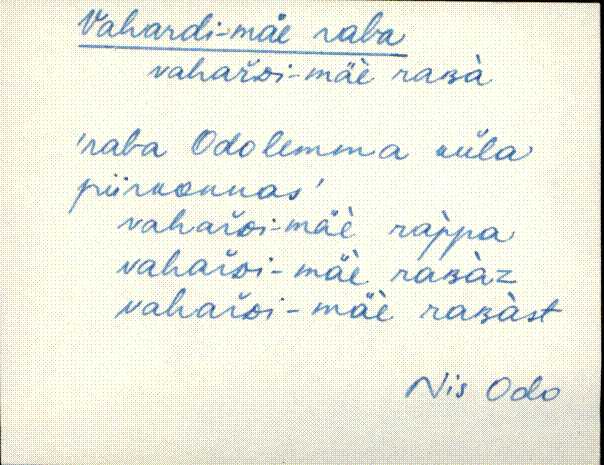 Vahardi-mäe raba
vaharᴅi-mäè raʙà
'raba Odolemma küla
piirkonnas'
vaharᴅi-mäè ràppa
vaharᴅi-mäè raʙàz
vaharᴅi-mäè raʙàst
Nis Odo